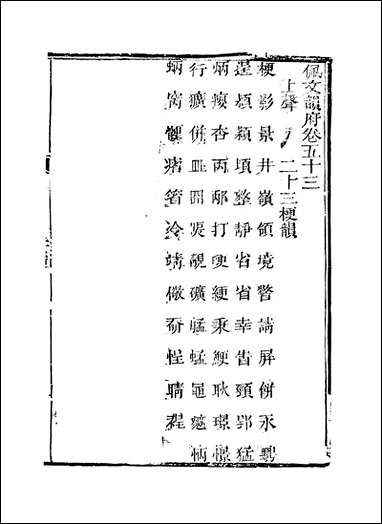 佩文韻府卷五十三
上聲 二十三梗韻
梗影景井嶺領境警請屏併永騁
逞潁穎頃整靜省省幸眚頸郢猛
炳癭杏丙邴打哽綆秉鯁耿璟憬
行獷併皿冏覭礦艋蜢黽
蛃窉睛箵冷靖儆